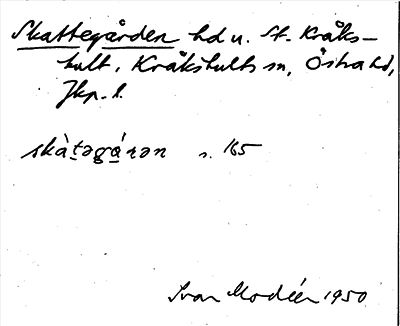 Skattegården hd u. St. Kråks-
hult, Kråkshults sn, Östra hd,
Jkp. l.
skàt̲əgá̲rən s. 165
Ivar Modéer 1950